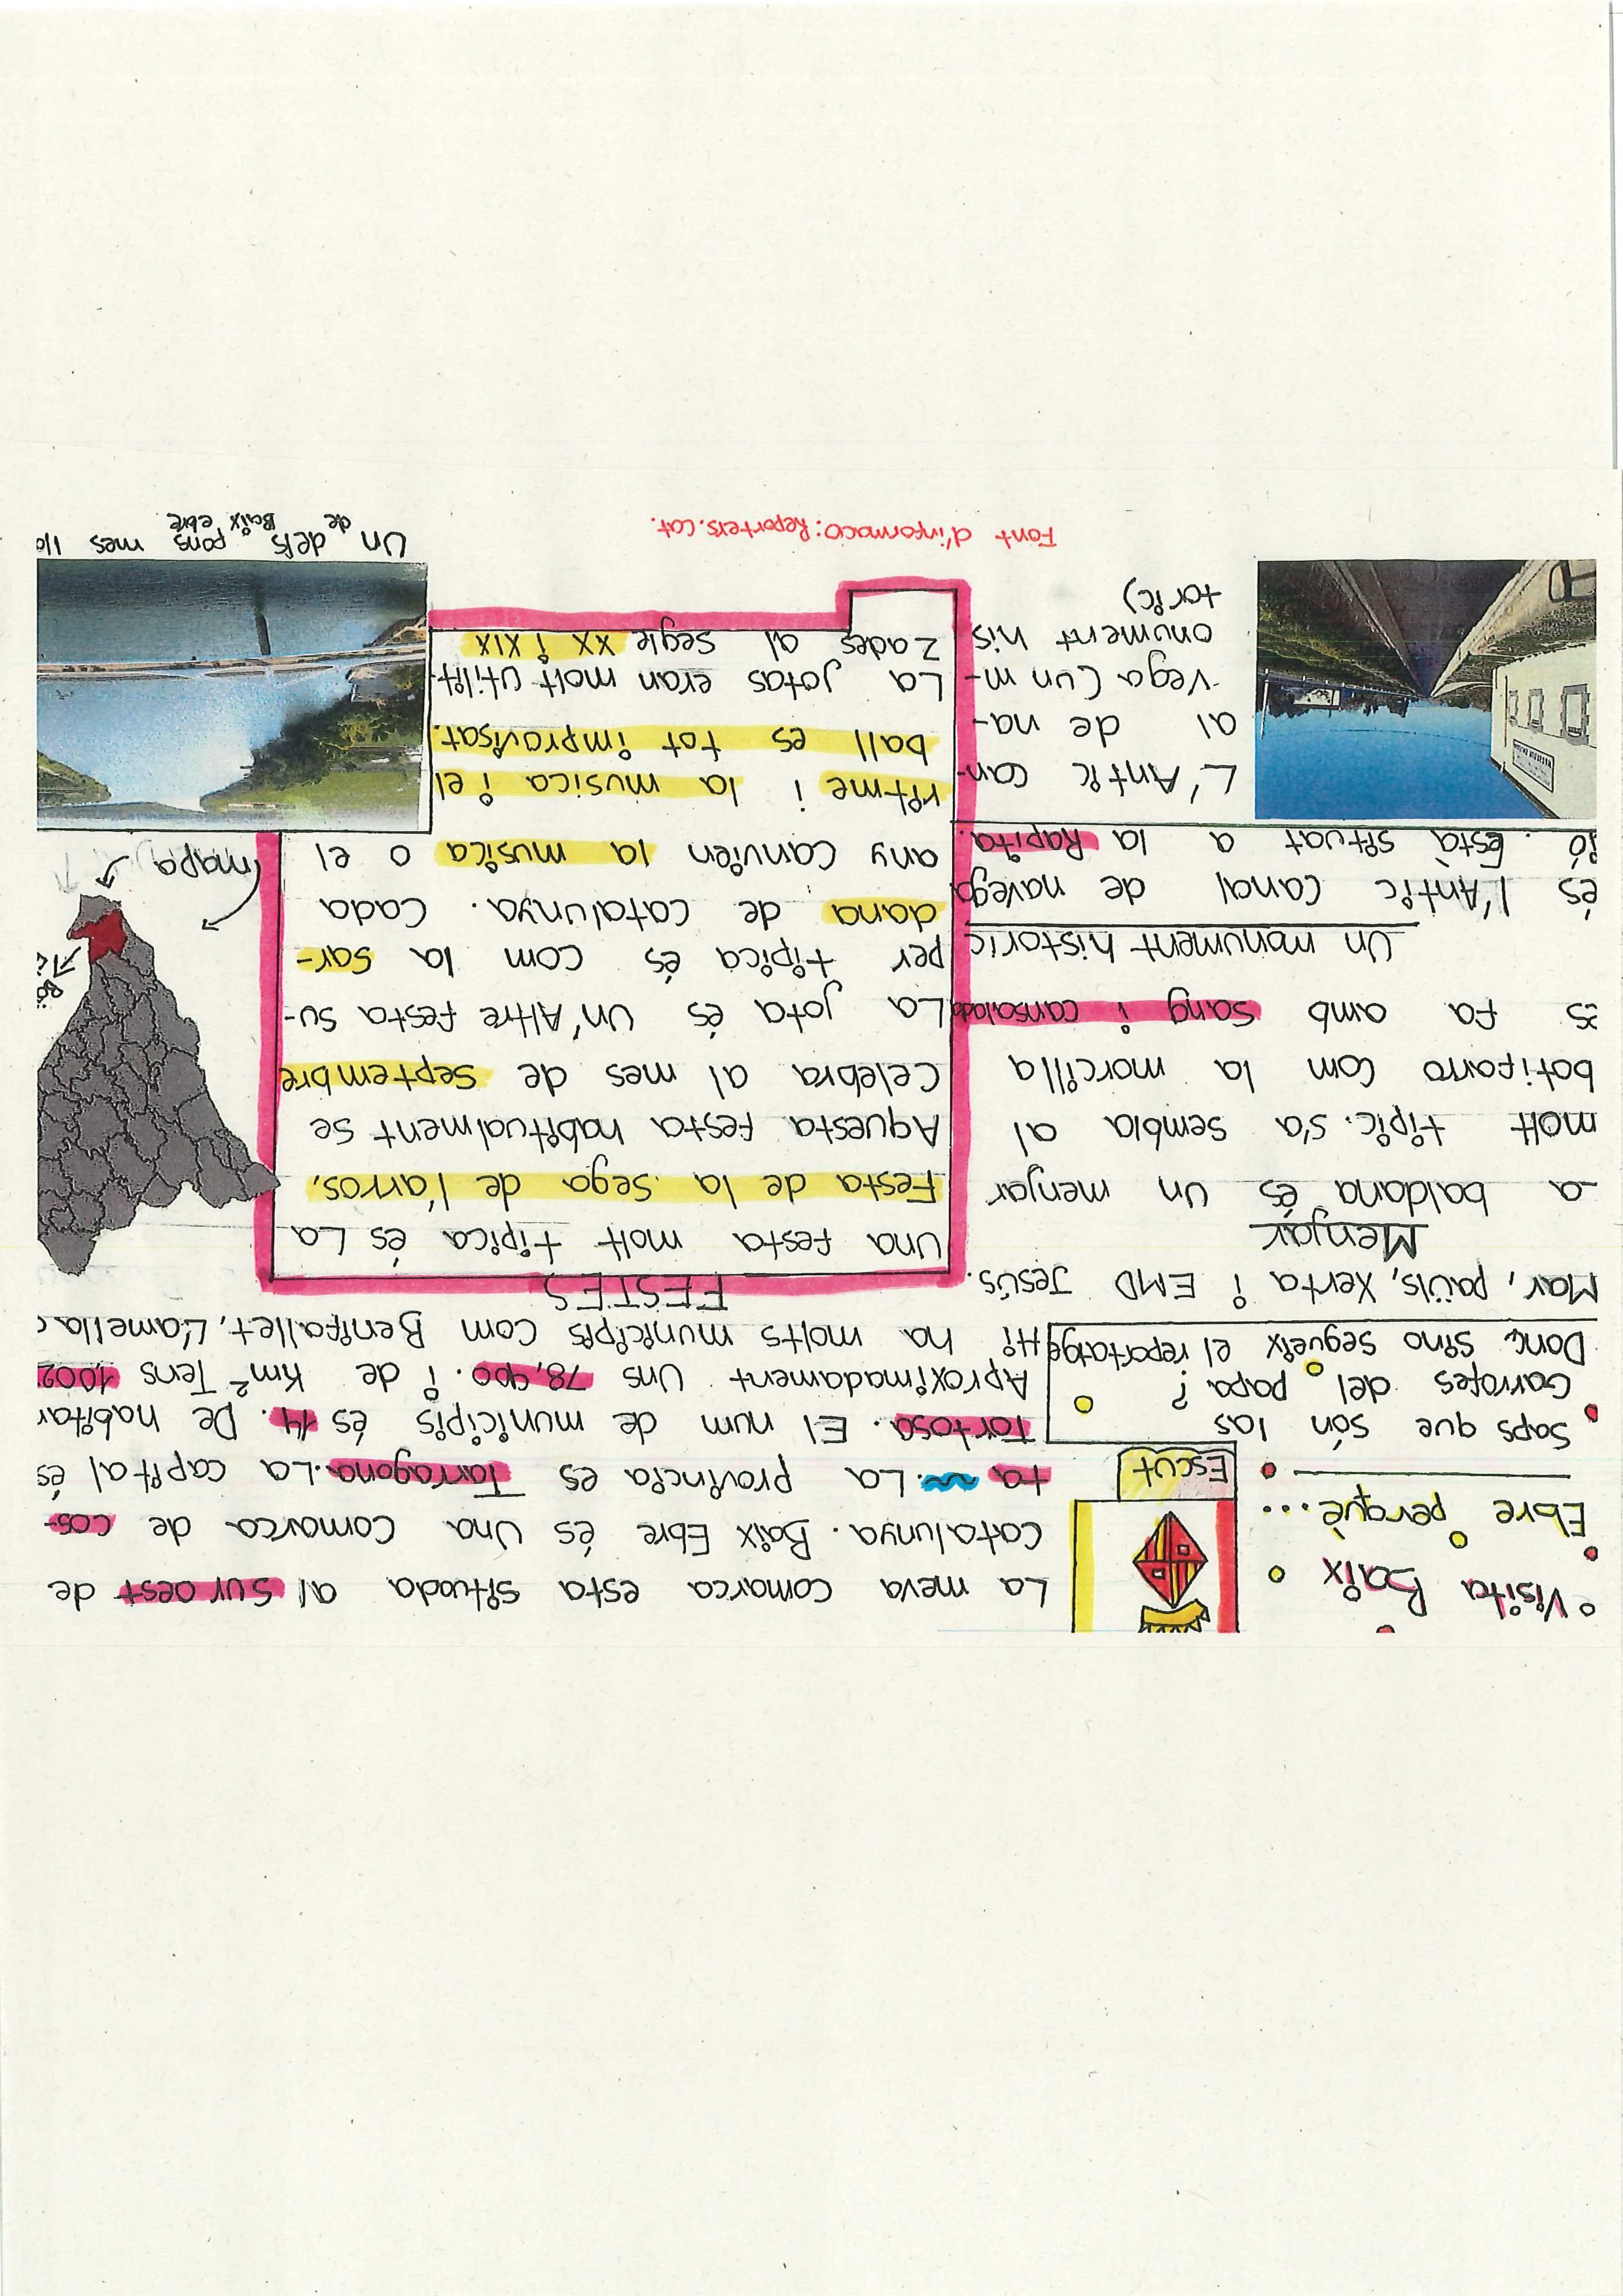 Visita Baix
Ebre perquè...
Escut
Saps que són las
Garrofes del papa?
Donc sino segueix el reportatge
La meva comarca esta situada al Sur oest de
catalunya. Baix Ebre és una comarca de cos-
ta. La província es Tarragona. La capital és
Tortosa. El num de municipis és 14. De habitar
Aproximadament Uns 78,900. i de Km² Tens 1,002
Hi ha molts municipis com Benifallet, L'amella
Mar, paüls, Xerta i EMD Jesús.
Menjar
a baldana és un menjar
molt típic. s'a sembla al
botifarro com la morcilla
es fa amb sang i cansalada
Un monument historic
és l'Antic canal de navega
ió. Està situat a la Rapita.
L'Antic can-
al de na-
vega (un m-
onument his
toric)
FESTES
Una festa molt típica és La
Festa de la sega de l'arros.
Aquesta festa habitualment se
Celebra al mes de Septembre
La jota és Un'Altre festa su-
per típica és com la sar-
dana de catalunya. Cada
any canvien la musica o el
ritme i la musica i el
ball es tot improvisat.
La jotas eran molt utilit-
zades al segle XX i XIX
(mapa)
Un dels pons mes
de Baix ebre
Font d'informacó: Reporters.cat.